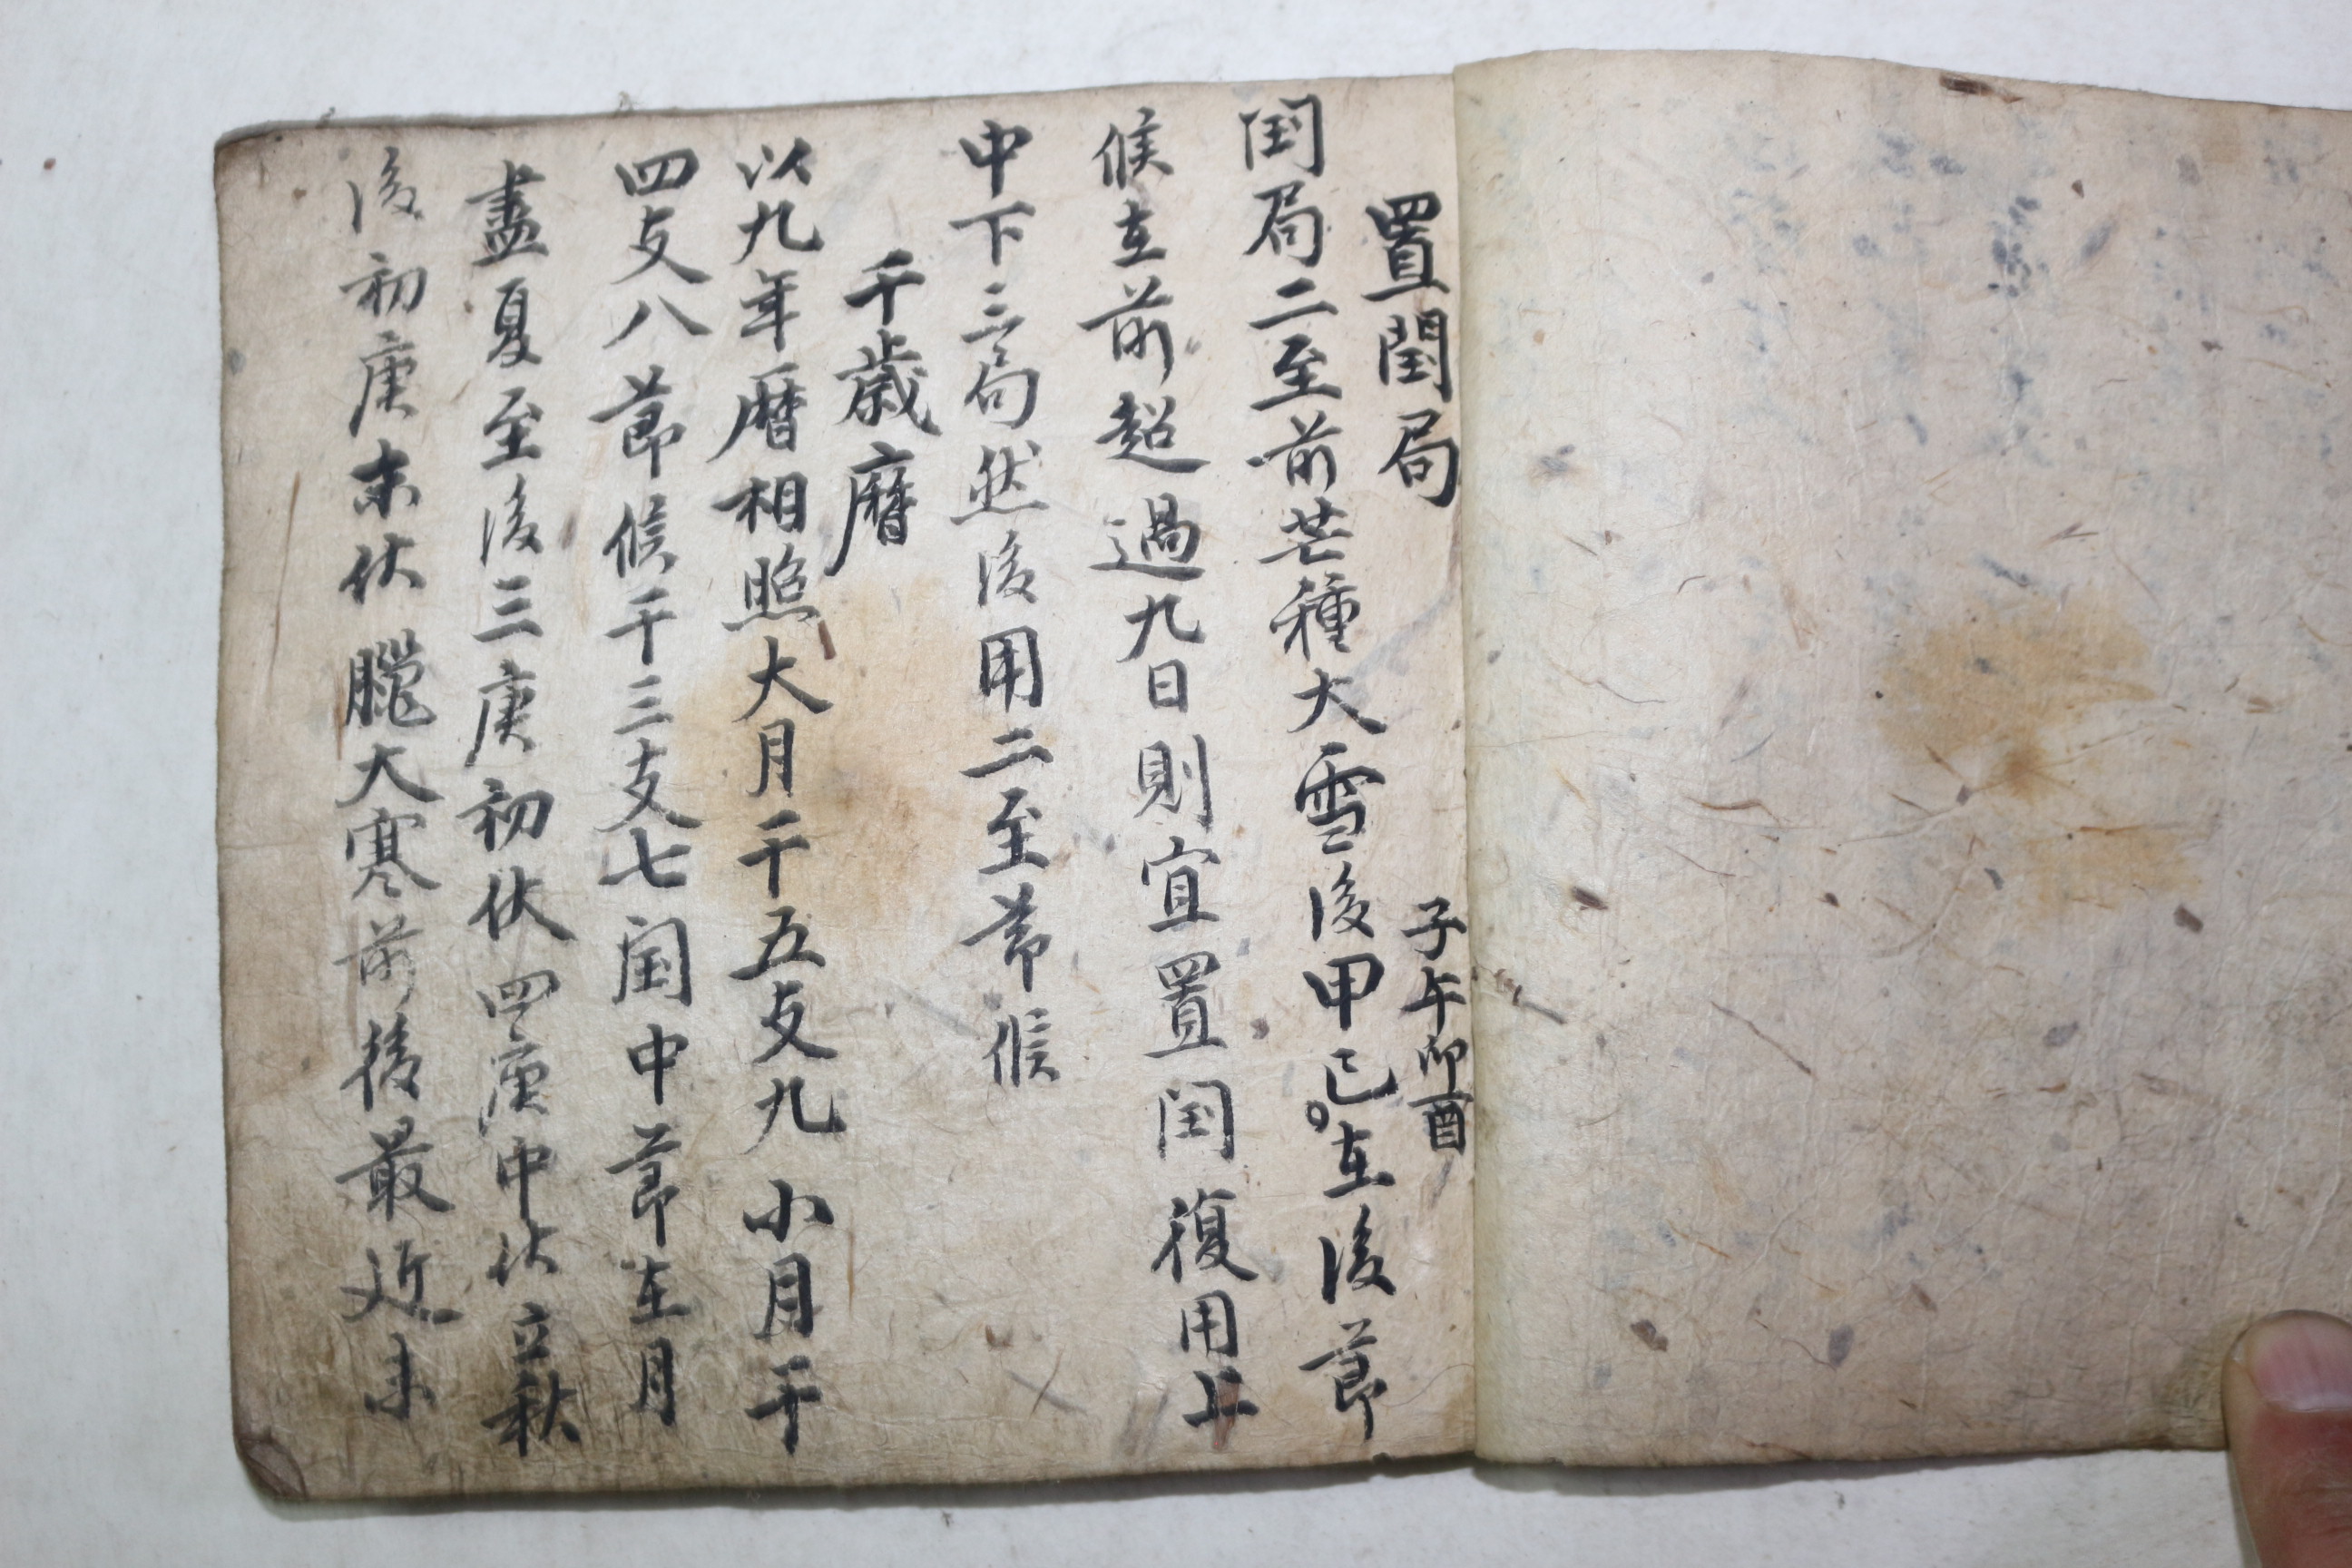 置閏局
子午卯酉
閏局二至前芒種大雪後甲己在後節
候在前超過九日則宜置閏復用上
中下三局然後用二至節候
千歲曆
以九年暦相照大月干五支九小月干
四支八節候干三支七閏中節在月
盡夏至後三庚初伏四庚中伏立秋
後初庚末伏臘大寒前後最近未